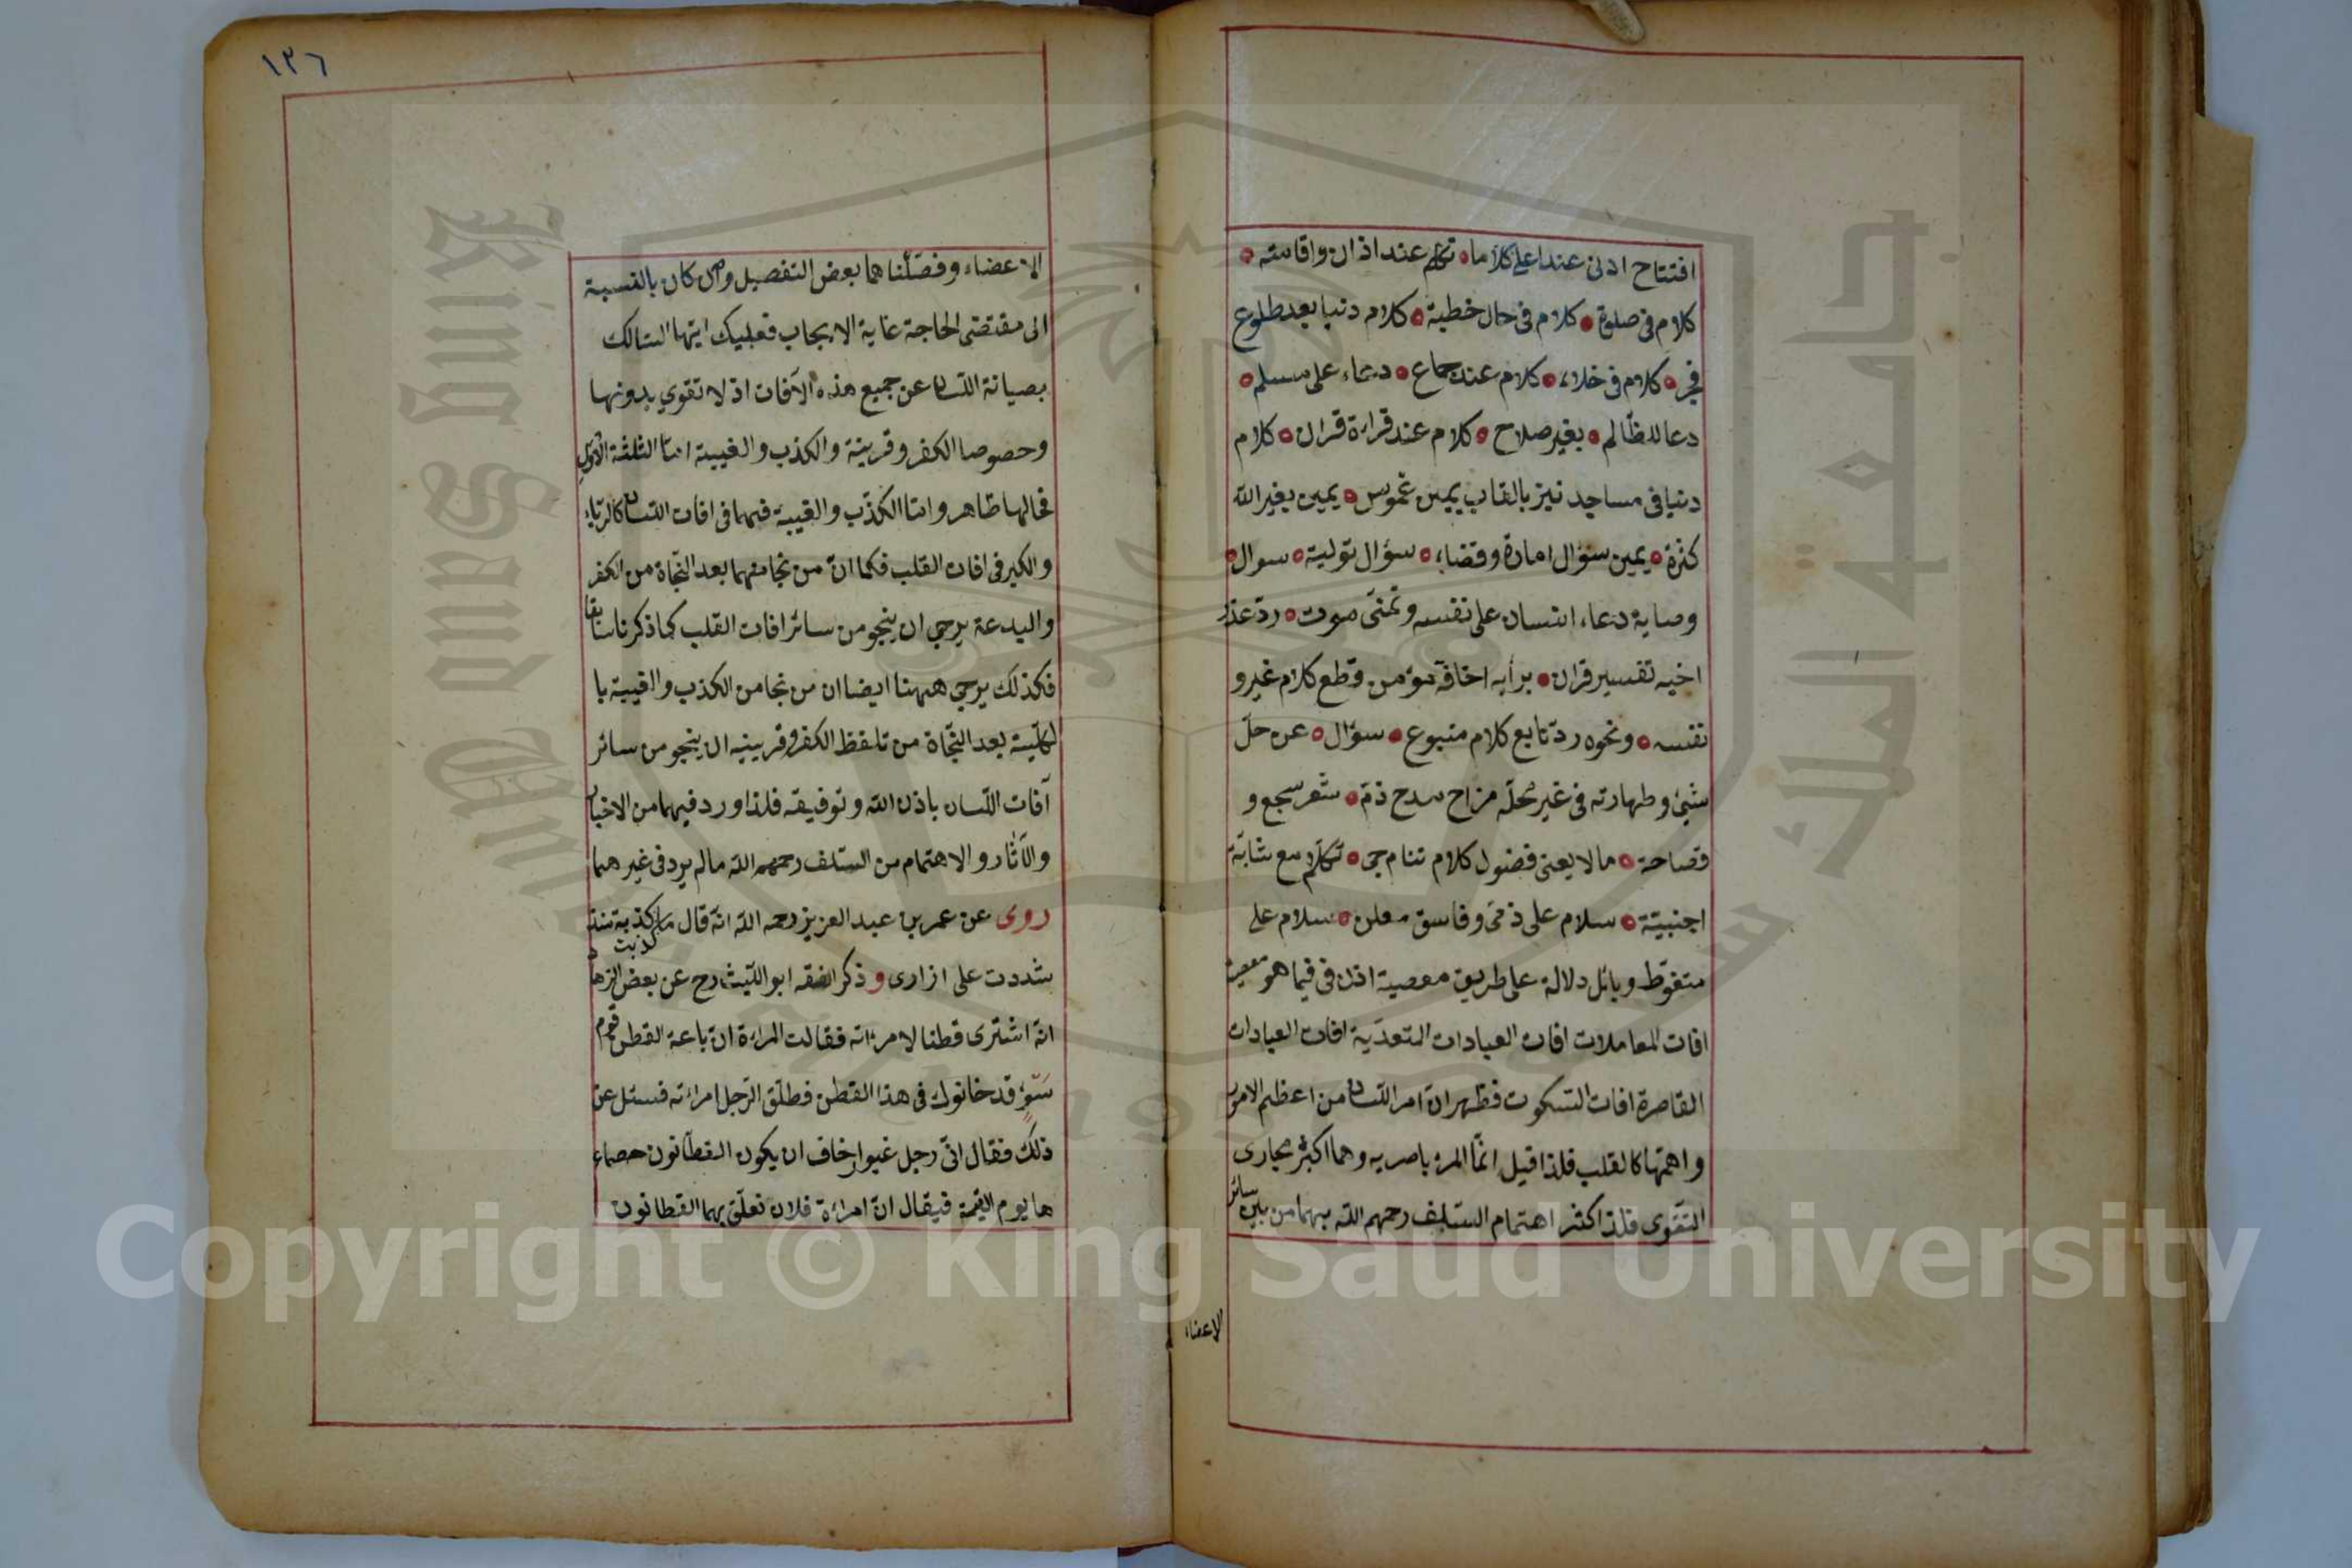 افتتاح ادنى عند اعلى كلاما ٥ تكلم عند اذان واقامته ٥
كلام فى صلوة ٥ كلام فى حال خطبة ٥ كلام دنيا بعد طلوع
فجر ٥ كلام فى خلاء ٥ كلام عند جماع ٥ دعاء على مسلم ٥
دعا للظالم ٥ بغير صلاح ٥ كلام عند قراءة قران ٥ كلام
دنيا فى مساجد نبز بالقاب يمين غموس ٥ يمين بغير الله
كثرة ٥ يمين سؤال امارة وقضاء ٥ سؤال تولية ٥ سوال ٥
وصاية دعاء انسان على نفسه وتمنى موت ٥ رد عذر
اخيه تفسير قران ٥ برأيه اخافة مؤمن وقطع كلام غير و
نفسه ٥ ونحوه رد تابع كلام متبوع ٥ سؤال ٥ عن حل
شيئ وطهارته فى غير محله مزاح مدح ذم ٥ شعر سجع و
فصاحة ٥ مالا يعنى فضول كلام تناجى ٥ تكلم مع شابة
اجنبية ٥ سلام على ذمى وفاسق معلن ٥ سلام على
متغوط وبائل دلالة على طريق معصية اذن فى فيما هو معصية
افات المعاملات افات العبادات المتعدية افات العبادات
القاصرة افات السكوت فظهر ان امر اللسان من اعظم الامور
واهمها كالقلب فلذا قيل انما المرء باصريه وهما اكبر مجارى
التقوى فلذا كثر اهتمام السلف رحمهم الله بهما من بين سائر
الاعضاء
١٣٦
الاعضاء وفصلنا هما بعض التفصيل وان كان بالنسبة
الى مقتضى الحاجة غاية الايجاب فعليك ايها السالك
بصيانة اللسان عن جميع هذه الآفات اذ لا تقوي بدونها
وحصوصا الكفر وقرينة والكذب والغيبة اما الثلثة الاول
فحالها ظاهر واما الكذب والغيبة فهما فى افات اللسان كالرياء
والكبر فى افات القلب فكما ان من نجا منهما بعد النجاة من الكفر
والبدعة يرجي ان ينجو من سائر افات القلب كما ذكرنا سابقا
فكذلك يرجي ههنا ايضا ان من نجا من الكذب والغيبة با
لكلية بعد النجاة من تلفظ الكفر وقرينيه ان ينجو من سائر
آفات اللسان باذن الله وتوفيقه فلذا ورد فيهما من الاخبار
والآثار والاهتمام من السلف رحمهم الله مالم يرد فى غير هما
روى عن عمر بن عبد العزيز رحمه الله انه قال ما كذبت كذبة منذ
شددت على ازارى وذكر الفقه ابو الليث رح عن بعض الزها
انه اشترى قطنا لامرأته فقالت المراءة ان باعة القطن قوم
سوء قد خانوك فى هذا القطن فطلق الرجل امراءته فسئل عن
ذلك فقال انى رجل غيور اخاف ان يكون القطانون حصماء
ها يوم القيمة فيقال ان امراءة فلان تعلق بهما القطانون
Copyright © King Saud University